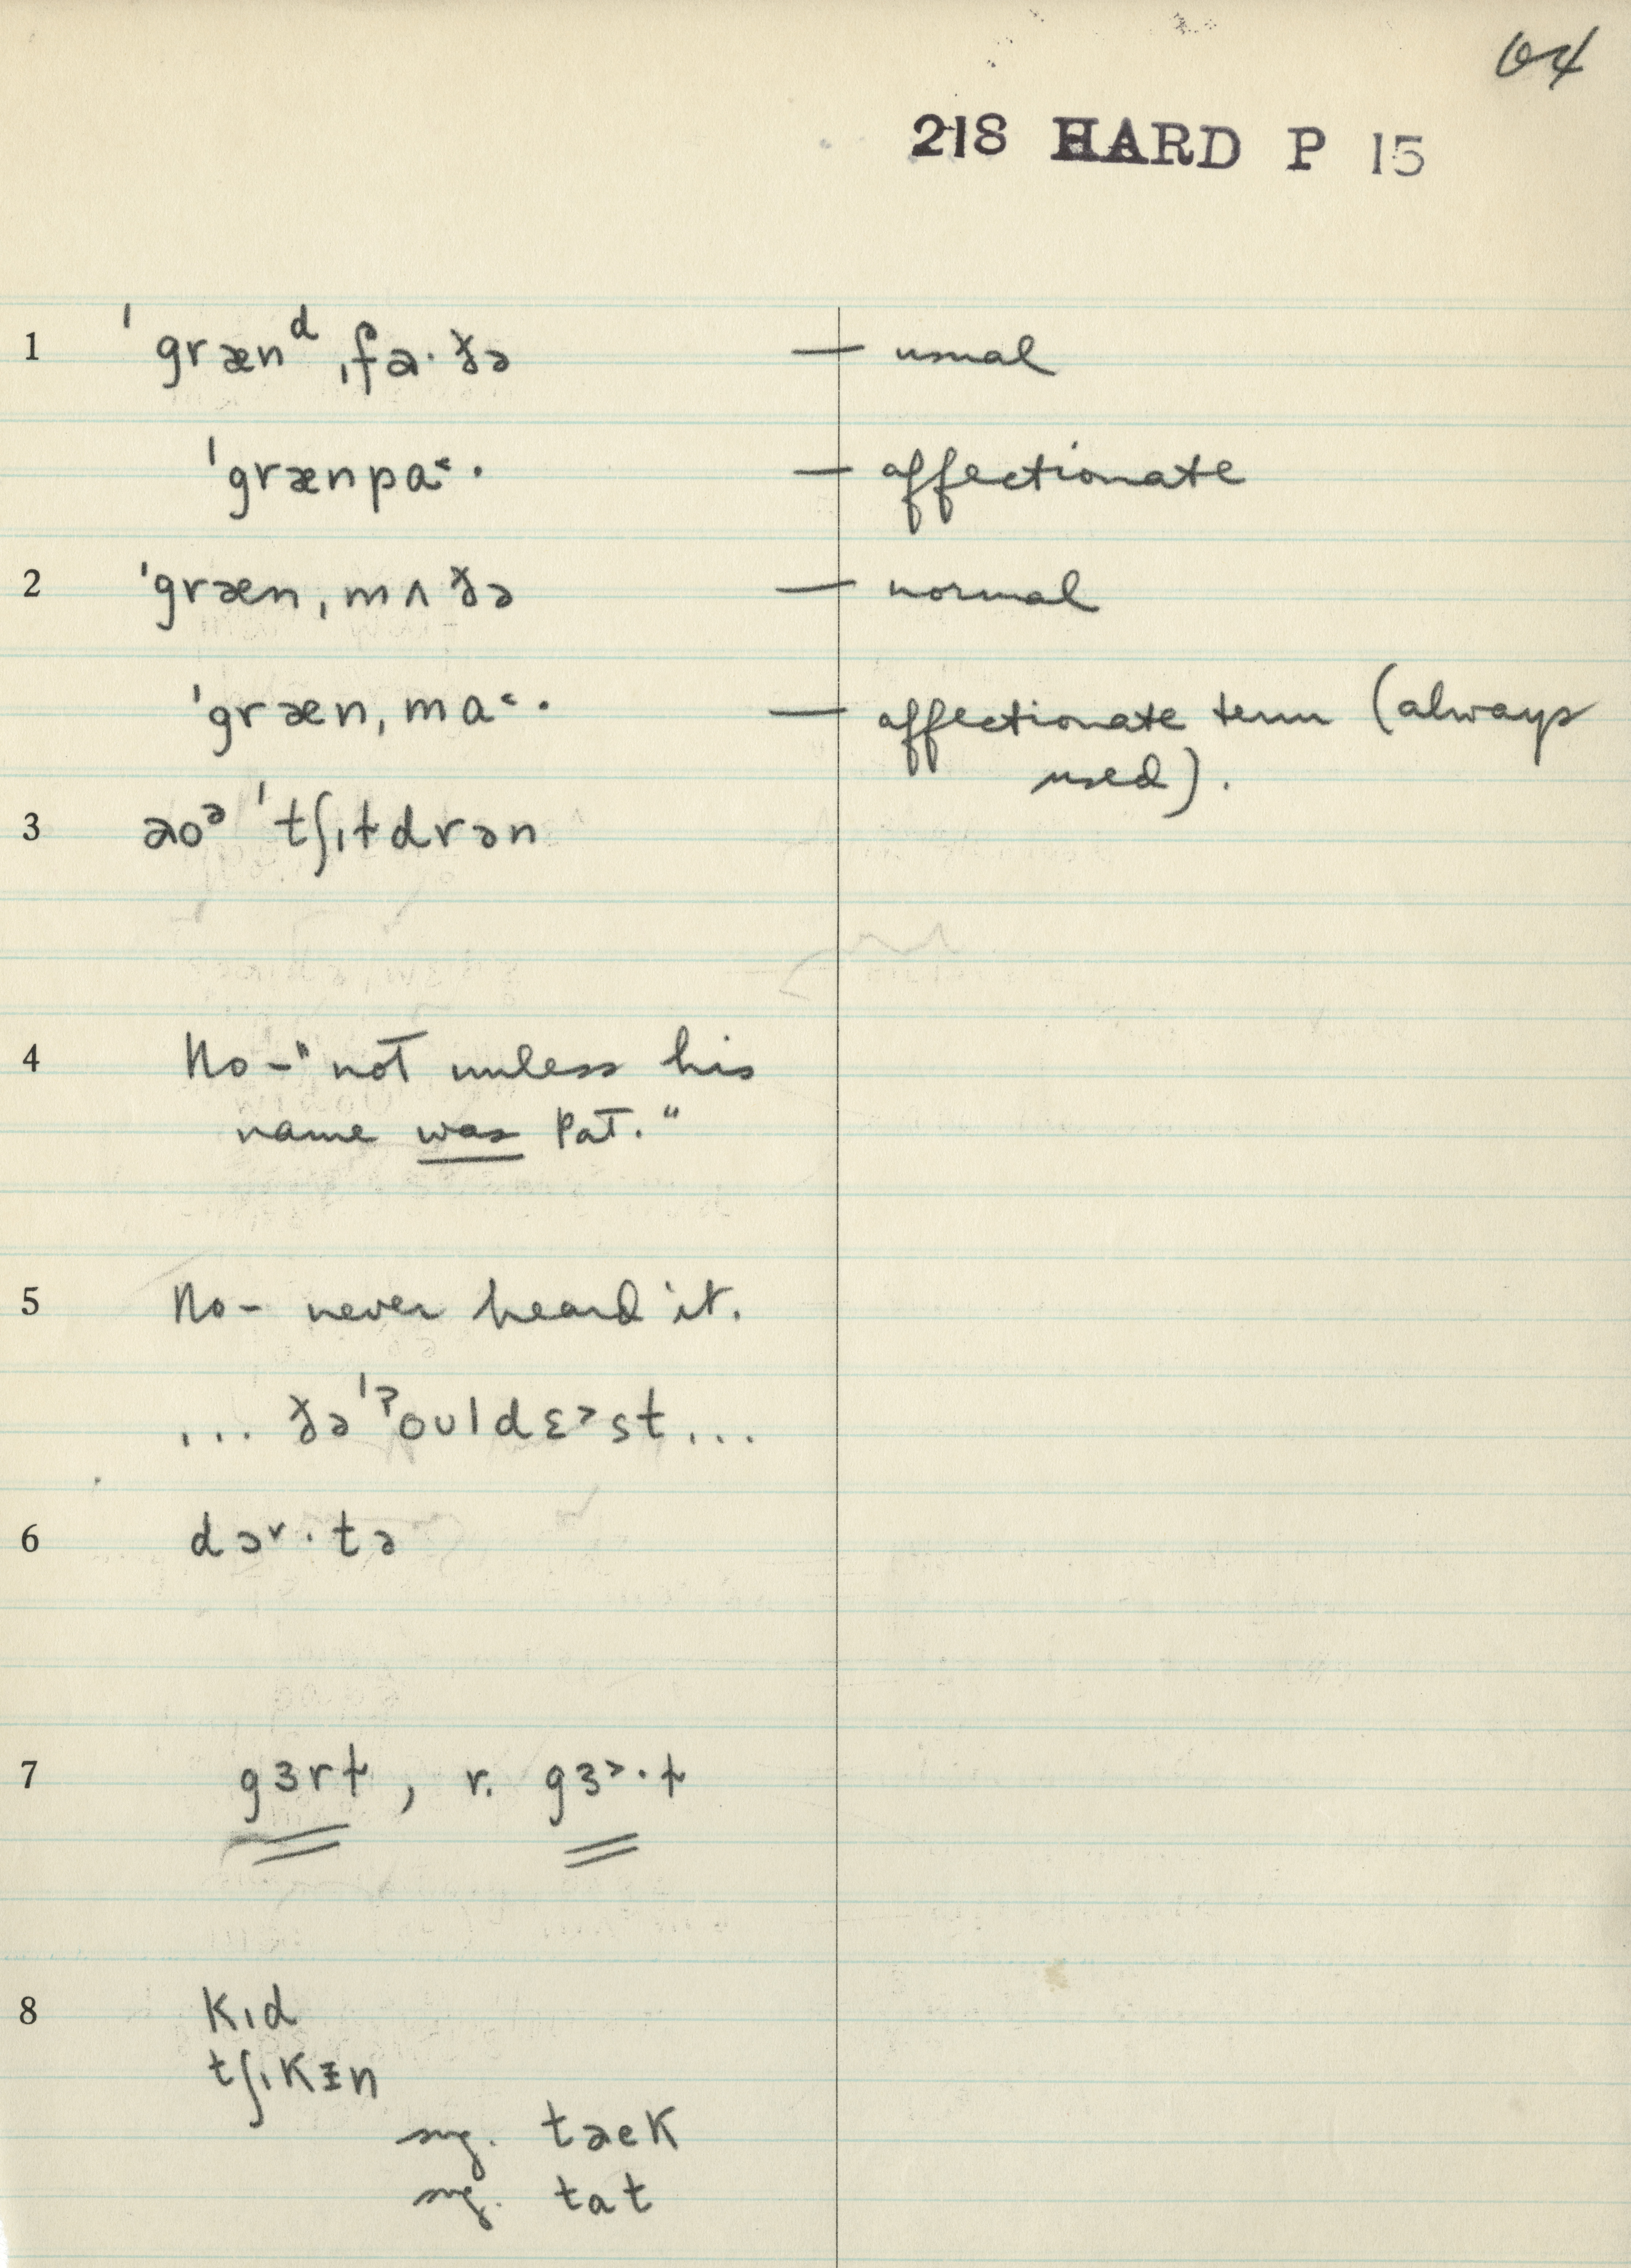 64
218 HARD P 15
1 ˈgrænᵈˌfa·ðə — usual
ˈgrænpa˂· — affectionate
2 ˈgrænˌmʌðə — normal
ˈgrænˌma˂· — affectionate term (always
used).
3 aoᵊ ˈtʃɪɫdrən
4 No – "not unless his
name was Pat."
5 No – never heard it.
... ðə ˈˀouldɛ˃st ...
6 dɔ·tə
7 gɜrɫ, r. gɜ˃·ɫ
8 kɪd
tʃɪkɪn
sug. taek
sug. tat